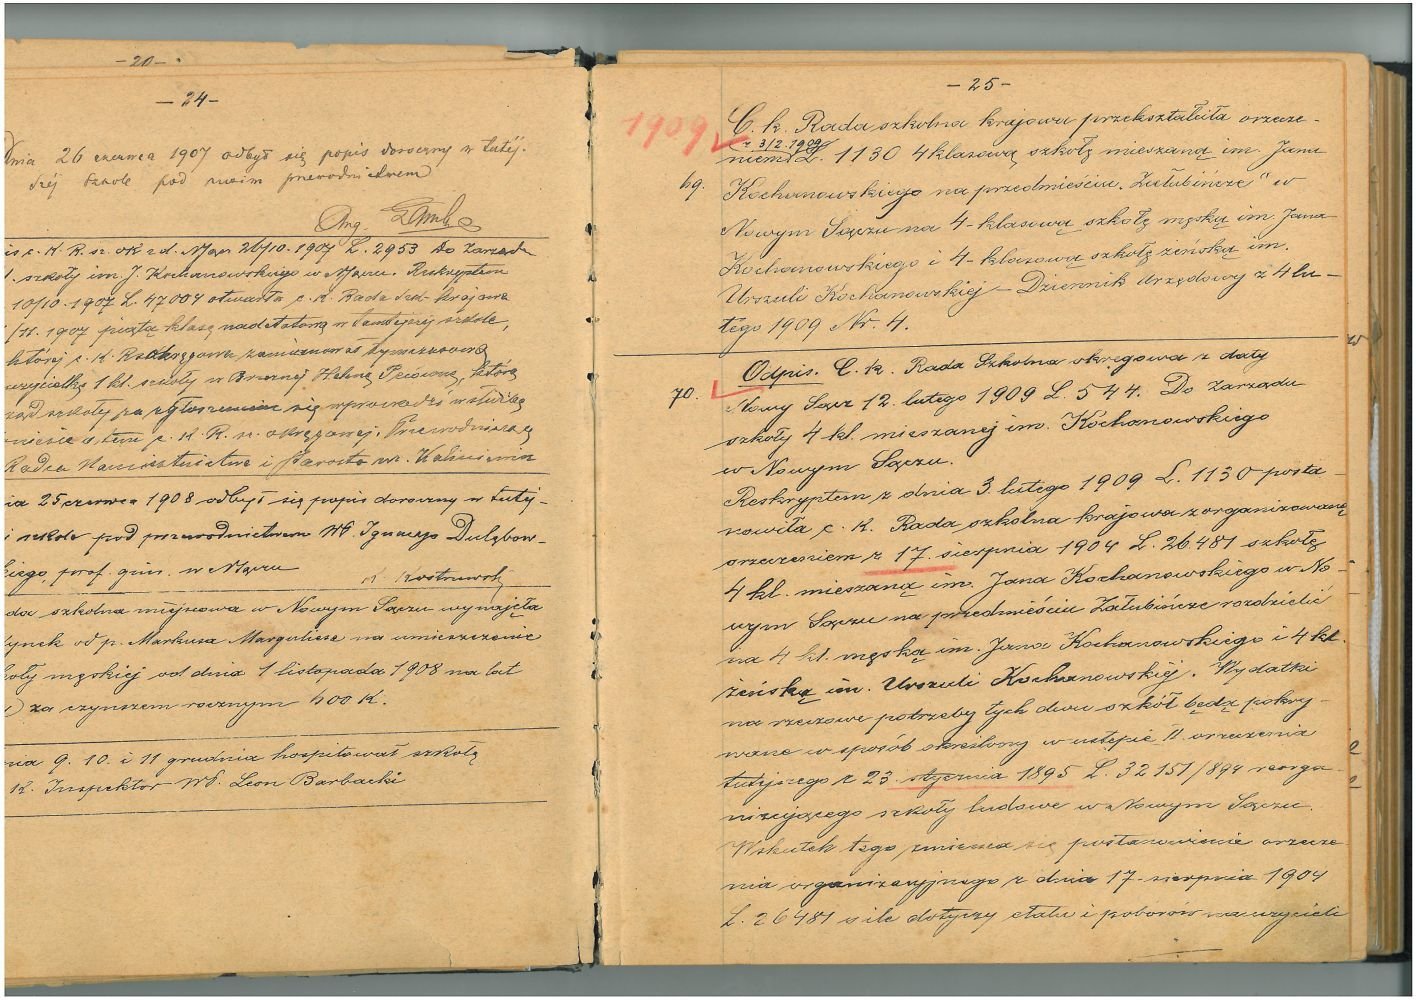 -20-
-24-
Dnia 26 czerwca 1907 odbył się popis doroczny w tutej.
szej szkole pod moim przewodnictwem
Ang.
is c. K. R. sz. ok z d. 26/10. 1907 L. 2953 Do Zarządu
szkoły im. J. Kochanowskiego w N. Sączu. Reskryptem
10/10. 1907 L. 47004 otwarła c. k. Rada Szk. krajowa
1907 piątą klasę nadetatową w tamtejszej szkole,
której c. K. R. s. okręgowa zamianowała tymczasową
uczycielkę 1 kl. szkoły w Helenę którą
ząd szkoły za zgłoszeniem się wprowadzi w służbę
c. K. R. sz. okręgowej. Przewodniczący
Radca Namiestnictwa i Starosta
ia 25 czerwca 1908 odbył się popis doroczny w tutej-
j szkole pod przewodnictwem WP. Ignacego Dulębow-
kiego, prof. gim. w N. Sączu
da szkolna miejscowa w Nowym Sączu wynajęła
ynek od p. Markusa Marguliesa na umieszczenie
oły męskiej od dnia 1 listopada 1908 na lat
za czynszem rocznym 400 K.
nia 9. 10. i 11 grudnia hospitował szkołę
K. Inspektor WP. Leon Barbacki
-25-
1909
C. k. Rada szkolna krajowa przekształciła orzecze-
z 3/2. 1909
niem L. 1130 4 klasową szkołę mieszaną im. Jana
69. Kochanowskiego na przedmieściu „Załubińcze" w
Nowym Sączu na 4-klasową szkołę męską im. Jana
Kochanowskiego i 4-klasową szkołę żeńską im.
Urszuli Kochanowskiej – Dziennik urzędowy z 4 lu-
tego 1909 Nr. 4.
Odpis. C. k. Rada Szkolna okręgowa z daty
70. Nowy Sącz 12. lutego 1909 L. 544. Do Zarządu
szkoły 4 kl. mieszanej im. Kochanowskiego
w Nowym Sączu.
Reskryptem z dnia 3. lutego 1909 L. 1130 posta-
nowiła c. k. Rada szkolna krajowa zorganizowaną
orzeczeniem z 17. sierpnia 1904 L. 26481 szkołę
4 kl. mieszaną im. Jana Kochanowskiego w No-
wym Sączu na przedmieściu Załubińcze rozdzielić
na 4 kl. męską im. Jana Kochanowskiego i 4 kl.
żeńską im. Urszuli Kochanowskiej. Wydatki
na rzeczowe potrzeby tych dwu szkół będą pokry-
wane w sposób określony w ustępie II. orzeczenia
tutejszego z 23. stycznia 1895 L. 32151/894 reorga-
nizującego szkoły ludowe w Nowym Sączu.
Wskutek tego zmienia się postanowienie orzecze-
nia organizacyjnego z dnia 17. sierpnia 1904
L. 26481 o ile dotyczy etatu i poborów nauczycieli